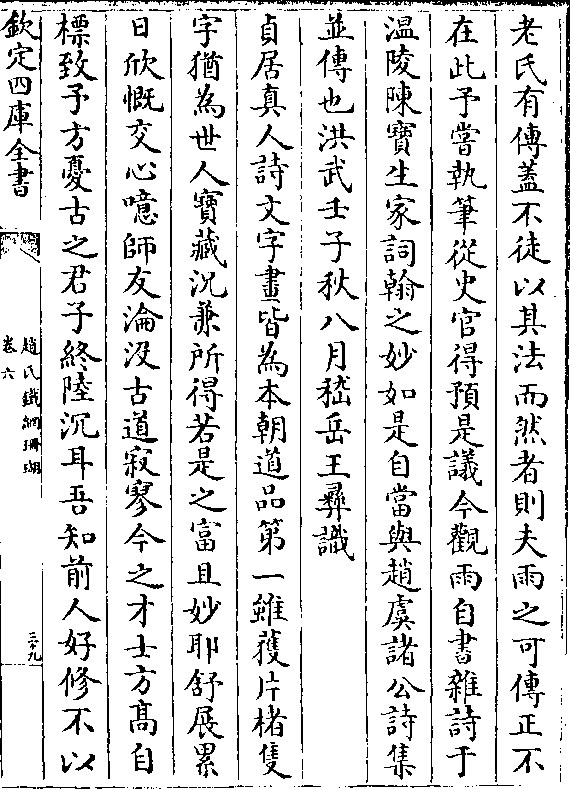 老氏有傳蓋不徒以其法而然者則夫雨之可傳正不
在此予嘗執筆從史官得預是議今觀雨自書雜詩于
温陵陳寶生家詞翰之妙如是自當與趙虞諸公詩集
並傳也洪武壬子秋八月嵇岳王彛識
貞居真人詩文字畫皆為本朝道品第一雖獲片楮隻
字猶為世人寶藏况兼所得若是之富且妙耶舒展累
日欣慨交心噫師友淪没古道寂寥今之才士方髙自
標致予方憂古之君子終陸沉耳吾知前人好修不以
欽定四庫全書
趙氏鐵網珊瑚
卷六
三十九